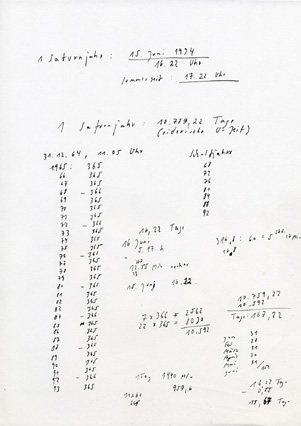 1 Saturnjahr : 15. Juni 1994
16.22 Uhr
Sommerzeit : 17.22 Uhr
1 Saturnjahr : 10.759,22 Tage
(siderische U-Zeit)
31.12.64, 11.05 Uhr
Schaltjahre
1965: 365
66 365
67 365
68 - 366
69 365
70 365
71 365
72 - 366
73 365
74 365
75 365
76 - 366
77 365
78 365
79 365
80 - 366
81 365
82 365
83 365
84 - 366
85 365
86 365
87 365
88 - 366
89 365
90 365
91 365
92 - 366
93 365
68
72
76
80
84
88
92
16,22 Tage
16. Juni
5.17 h
12.55 Min
15. Juni 16.22.
7 x 366 = 2562
22 x 365 = 8030
10.592
10.759,22
10.592
Tage: 167,22
Jan 31
Feb 28
März 31
April 30
Mai 31
1 Tag 1440 Min
16,22 Tage